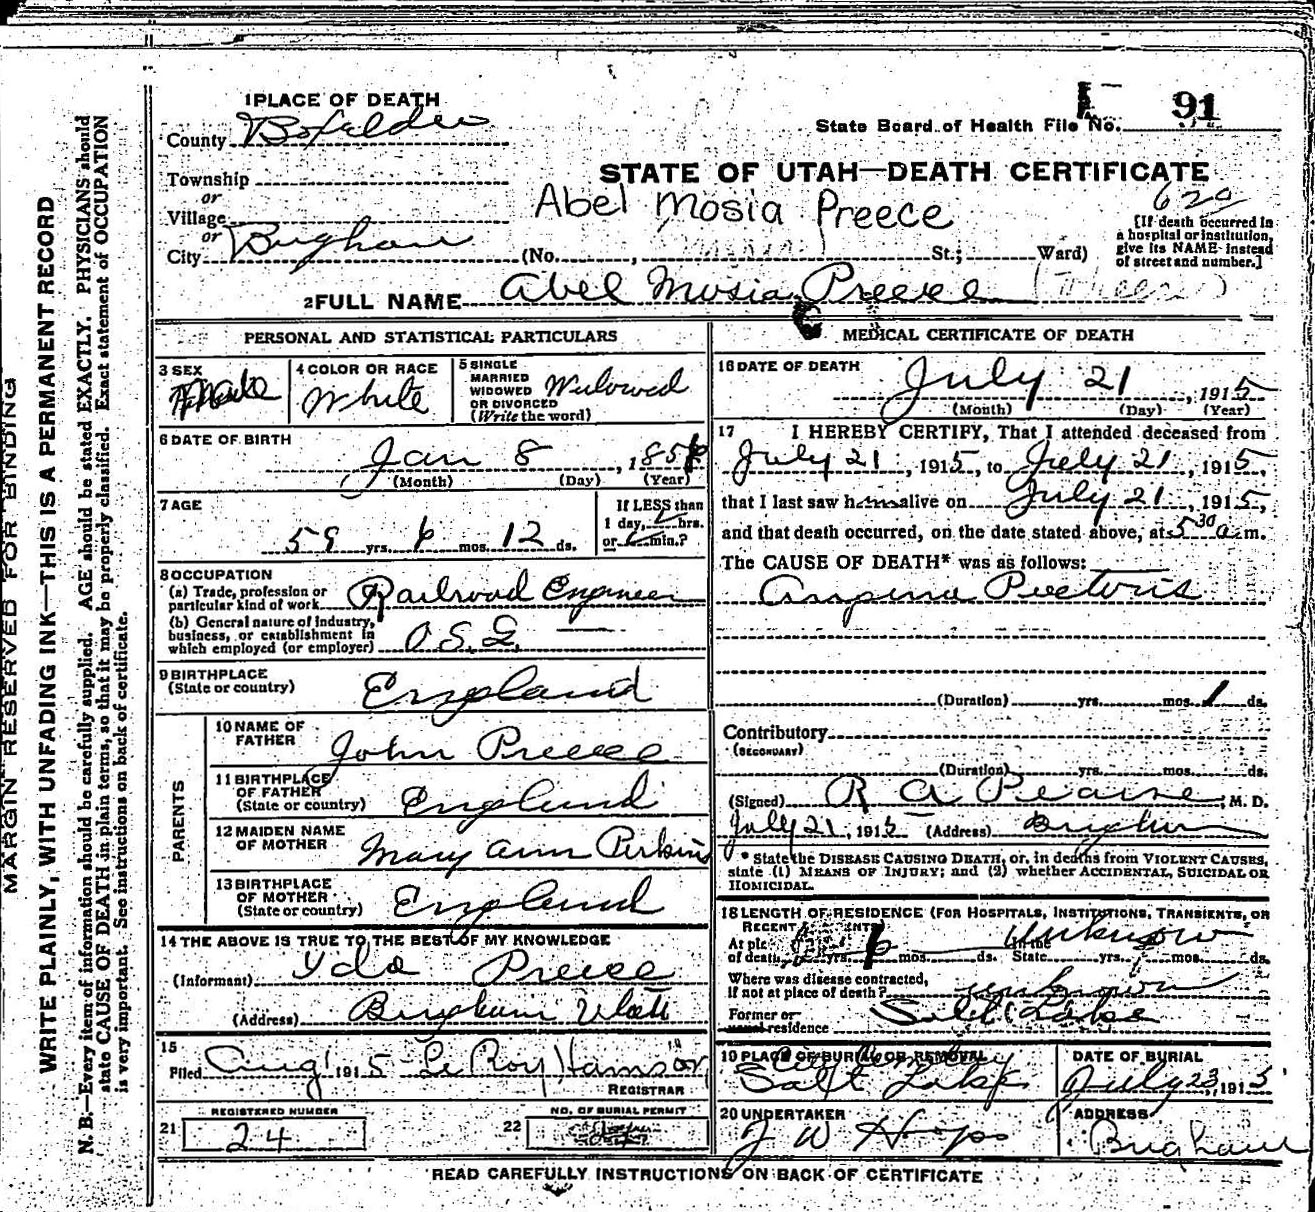 MARGIN RESERVED FOR BINDING
WRITE PLAINLY, WITH UNFADING INK—THIS IS A PERMANENT RECORD
N. B.—Every item of information should be carefully supplied. AGE should be stated EXACTLY. PHYSICIANS should
state CAUSE OF DEATH in plain terms, so that it may be properly classified. Exact statement of OCCUPATION
is very important. See instructions on back of certificate.
1 PLACE OF DEATH
County Boxelder
Township
or
Village
or
City Brigham
State Board of Health File No. 91
STATE OF UTAH—DEATH CERTIFICATE
Abel Mosia Preece
620
[If death occurred in
a hospital or institution,
give its NAME instead
of street and number.]
(No. , St.; Ward)
2 FULL NAME Abel Mosia Preece
PERSONAL AND STATISTICAL PARTICULARS
3 SEX Male
4 COLOR OR RACE White
5 SINGLE
MARRIED
WIDOWED
OR DIVORCED
(Write the word) Widowed
6 DATE OF BIRTH
Jan 8, 1856
(Month) (Day) (Year)
7 AGE
59 yrs. 6 mos. 12 ds.
If LESS than
1 day, hrs.
or min.?
8 OCCUPATION
(a) Trade, profession or
particular kind of work Railroad Engineer
(b) General nature of industry,
business, or establishment in
which employed (or employer) O.S.L.
9 BIRTHPLACE
(State or country) England
PARENTS
10 NAME OF
FATHER John Preece
11 BIRTHPLACE
OF FATHER
(State or country) England
12 MAIDEN NAME
OF MOTHER Mary Ann Perkins
13 BIRTHPLACE
OF MOTHER
(State or country) England
14 THE ABOVE IS TRUE TO THE BEST OF MY KNOWLEDGE
(Informant) Ida Preece
(Address) Brigham Utah
15
Filed Aug 1 1915 Le Roy
REGISTRAR
REGISTERED NUMBER
21 24
NO. OF BURIAL PERMIT
22
MEDICAL CERTIFICATE OF DEATH
16 DATE OF DEATH
July 21, 1915
(Month) (Day) (Year)
17 I HEREBY CERTIFY, That I attended deceased from
July 21, 1915, to July 21, 1915,
that I last saw him alive on July 21, 1915,
and that death occurred, on the date stated above, at 5 30 a. m.
The CAUSE OF DEATH* was as follows:
Angina Pectoris
(Duration) yrs. mos. 1 ds.
Contributory
(SECONDARY)
(Duration) yrs. mos. ds.
(Signed) R A Pearse, M. D.
July 21, 1915 (Address) Brigham
* State the DISEASE CAUSING DEATH, or, in deaths from VIOLENT CAUSES,
state (1) MEANS OF INJURY; and (2) whether ACCIDENTAL, SUICIDAL OR
HOMICIDAL.
18 LENGTH OF RESIDENCE (FOR HOSPITALS, INSTITUTIONS, TRANSIENTS, OR
RECENT
of death yrs. 6 mos. ds. In the State Unknown yrs. mos. ds.
Where was disease contracted,
if not at place of death? unknown
Former or
usual residence Salt Lake
19 PLACE OF BURIAL OR REMOVAL
City Cemetery
Salt Lake
DATE OF BURIAL
July 23, 1915
20 UNDERTAKER
J W
ADDRESS
Brigham
READ CAREFULLY INSTRUCTIONS ON BACK OF CERTIFICATE